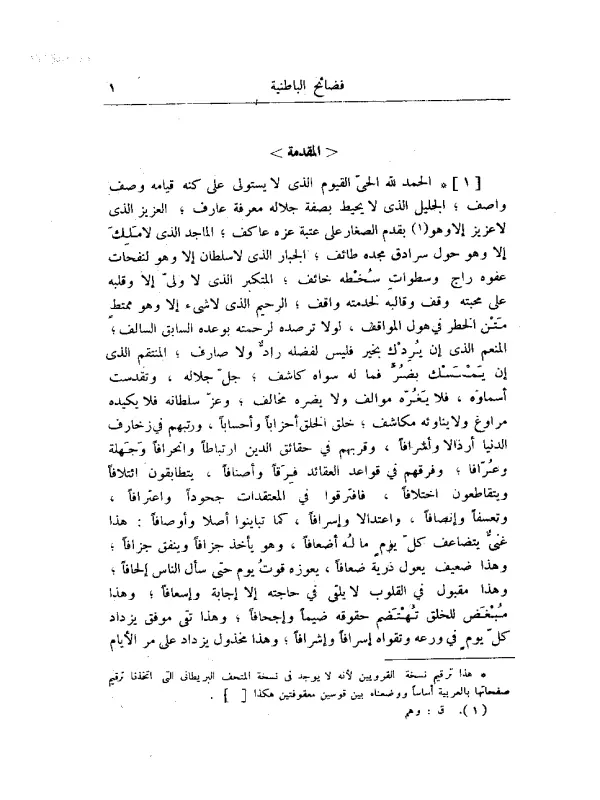 فضائح الباطنية ١
< المقدمة >
[ ١ ] * الحمد لله الحىّ القيوم الذى لا يستولى على كنه قيامه وصف
واصف ؛ الجليل الذى لا يحيط بصفة جلاله معرفة عارف ؛ العزيز الذى
لاعزيز إلاوهو(١) بقدم الصغار على عتبة عزه عاكف ؛ الماجد الذى لامَليكَ
إلا وهو حول سرادق مجده طائف ؛ الجبار الذى لاسلطان إلا وهو لنفحات
عفوه راج وسطوات سُخْطه خائف ؛ المتكبر الذى لا ولىّ إلا وقلبه
على محبته وقف وقالبه لخدمته واقف ؛ الرحيم الذى لاشىء إلا وهو ممتطٍ
مَتْنَ الخطر فى هول المواقف ، لولا ترصده لرحمته بوعده السابق السالف ؛
المنعم الذى إن يُرِدْك بخير فليس لفضله رادٌّ ولا صارف ؛ المنتقم الذى
إن يَمْسَسْك بضُرٍّ فما له سواه كاشف ؛ جلّ جلاله ، وتقدست
أسماؤه ، فلا يَغُرّه موالف ولا يضره مخالف ؛ وعزّ سلطانه فلا يكيده
مراوغ ولا يناوئه مكاشف ؛ خلق الخلق أحزاباً وأحساباً ، ورتبهم فى زخارف
الدنيا أرذالا وأشرافاً ، وقربهم فى حقائق الدين ارتباطاً وانحرافاً وجَهَلة
وعُرّافا ؛ وفرقهم فى قواعد العقائد فِرَقاً وأصنافاً ، يتطابقون ائتلافاً
ويتقاطعون اختلافاً ، فافترقوا فى المعتقدات جحوداً واعترافاً ،
وتعسفاً وإنصافاً ، واعتدالا وإسرافاً ، كما تباينوا أصلا وأوصافاً : هذا
غنىٌّ يتضاعف كلّ يومٍ ما لَه أضعافاً ، وهو يأخذ جزافاً وينفق جزافاً ؛
وهذا ضعيف يعول ذريةً ضعافاً ، يعوزه قوتُ يوم حتى سأل الناس إلحافاً ؛
وهذا مقبول فى القلوب لا يلقى فى حاجته إلا إجابة وإسعافاً ؛ وهذا
مُبْغَض للخلق تُهْتَضَم حقوقه ضيماً وإجحافاً ؛ وهذا تقى موفق يزداد
كلّ يومٍ فى ورعه وتقواه إسرافاً وإشرافاً ؛ وهذا مخذول يزداد على مر الأيام
* هذا ترقيم نسخة القرويين لأنه لا يوجد فى نسخة المتحف البريطانى التى اتخذنا ترقيم
صفحاتها بالعربية أساساً ووضعناه بين قوسين معقوفتين هكذا [ ] .
(١). ق : وهم